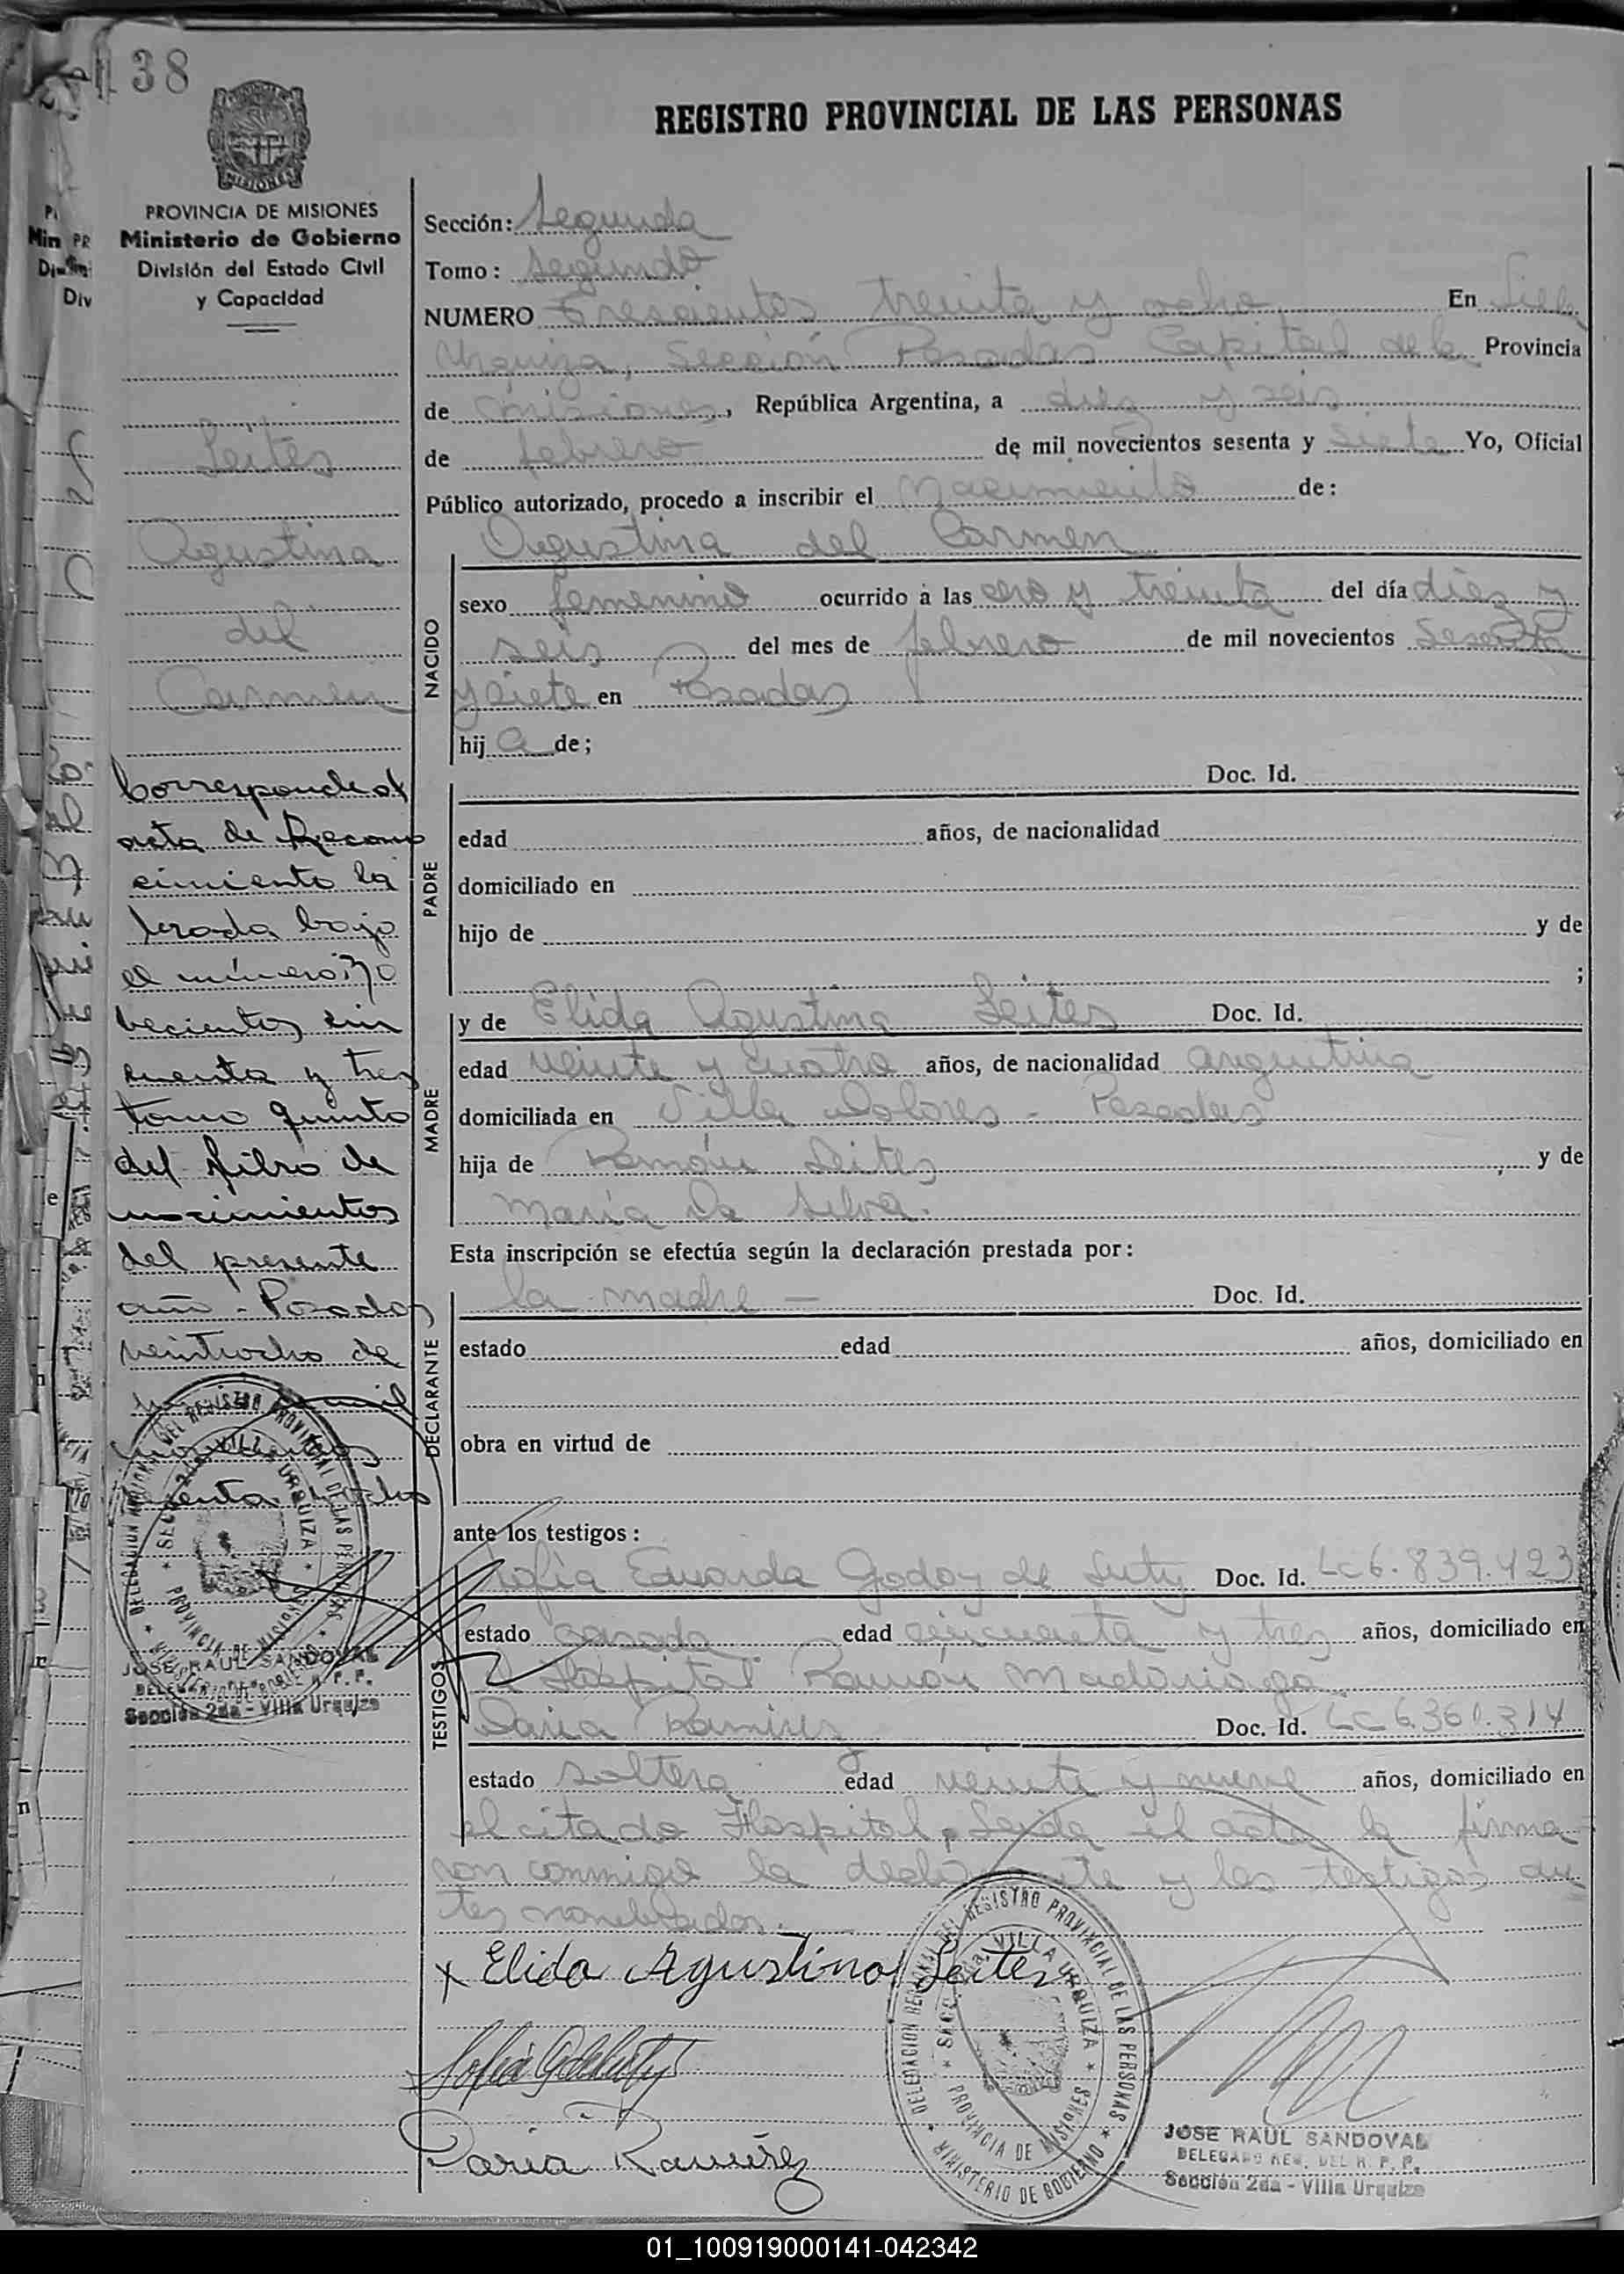 138
REGISTRO PROVINCIAL DE LAS PERSONAS
MISIONES
PROVINCIA DE MISIONES
Ministerio de Gobierno
División del Estado Civil
y Capacidad
Leites
Agustina
del
Carmen
Corresponde al
acta de Recono
cimiento la
brada bajo
el número
cientos cin
cuenta y tres
tomo quinto
del libro de
nacimientos
del presente
año - Posadas
veintiocho de
mil
JOSE RAUL SANDOVAL
Sección 2da - Villa Urquiza
Sección: Segunda
Tomo: Segundo
NUMERO Trescientos treinta y ocho En Villa
Urquiza, Sección Posadas Capital de la Provincia
de Misiones, República Argentina, a diez y seis
de febrero de mil novecientos sesenta y siete Yo, Oficial
Público autorizado, procedo a inscribir el Nacimiento de:
Agustina del Carmen
NACIDO
sexo femenino ocurrido a las cero y treinta del día diez y
seis del mes de febrero de mil novecientos sesenta
y siete en Posadas
hij a de;
PADRE
Doc. Id.
edad años, de nacionalidad
domiciliado en
hijo de y de
;
MADRE
y de Elida Agustina Leites Doc. Id.
edad veinte y cuatro años, de nacionalidad argentina
domiciliada en Villa Dolores - Posadas
hija de Ramón Leites y de
María Da Silva.
Esta inscripción se efectúa según la declaración prestada por:
DECLARANTE
la madre — Doc. Id.
estado edad años, domiciliado en
obra en virtud de
ante los testigos:
TESTIGOS
Sofía Eduarda Godoy de Luty Doc. Id. LC 6.839.423
estado casada edad cincuenta y tres años, domiciliado en
el Hospital Ramón Madariaga
Daria Ramirez Doc. Id. LC 6.361.314
estado soltera edad veinte y nueve años, domiciliado en
el citado Hospital, Leida el acta la firma
ron conmigo la declarante y los testigos an
tes nombrados.
x Elida Agustina Leites
Daria Ramírez
DELEGACION REGIONAL DEL REGISTRO PROVINCIAL DE LAS PERSONAS
SECC. 2da. VILLA URQUIZA
PROVINCIA DE MISIONES
MINISTERIO DE GOBIERNO
JOSE RAUL SANDOVAL
DELEGADO REG. DEL R. P. P.
Sección 2da - Villa Urquiza
01_100919000141-042342